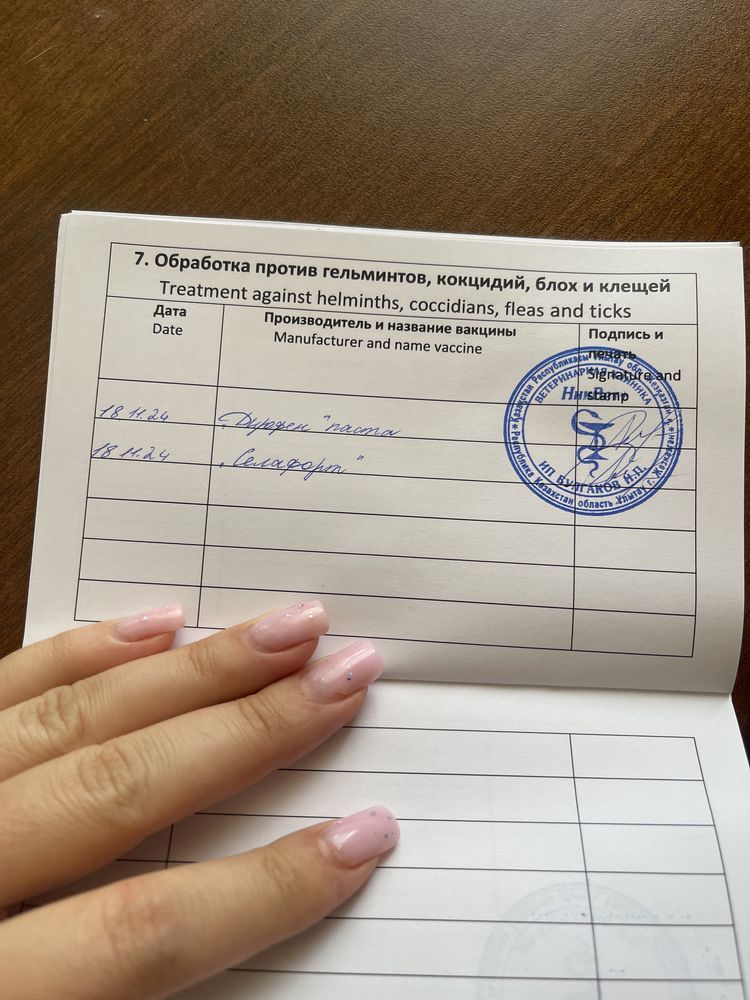 7. Обработка против гельминтов, кокцидий, блох и клещей
Treatment against helminths, coccidians, fleas and ticks
Дата
Date
Производитель и название вакцины
Manufacturer and name vaccine
Подпись и
печать
Signature and
stamp
18.11.24 „Дирофен" паста
18.11.24 „Селафорт"
Республикасы Ұлытау облысы
ВЕТЕРИНАРНАЯ КЛИНИКА
ИП БУЛГАКОВ И.Д.
Республика Казахстан область Ұлытау г.